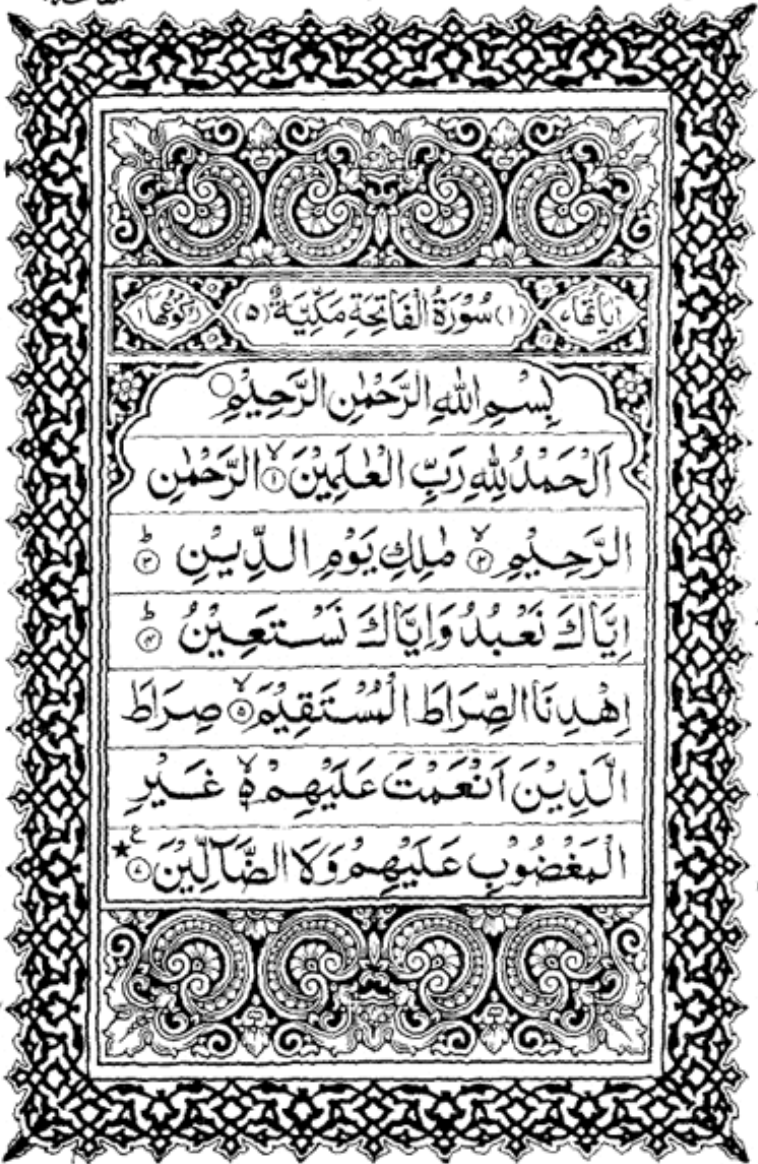 اٰيَاتُهَا ٧ (١) سُوْرَةُ الْفَاتِحَةِ مَكِّيَّةٌ (٥) رُكُوْعُهَا ١
بِسْمِ اللّٰهِ الرَّحْمٰنِ الرَّحِيْمِ
اَلْحَمْدُ لِلّٰهِ رَبِّ الْعٰلَمِيْنَ ۙ‏﴿۱﴾ الرَّحْمٰنِ
الرَّحِيْمِ ۙ‏﴿۲﴾ مٰلِكِ يَوْمِ الدِّيْنِ ؕ‏﴿۳﴾
اِيَّاكَ نَعْبُدُ وَاِيَّاكَ نَسْتَعِيْنُ ؕ‏﴿۴﴾
اِهْدِنَا الصِّرَاطَ الْمُسْتَقِيْمَ ۙ‏﴿۵﴾ صِرَاطَ
الَّذِيْنَ اَنْعَمْتَ عَلَيْهِمْ ۙ۬ۙ غَيْرِ
الْمَغْضُوْبِ عَلَيْهِمْ وَلَا الضَّآلِّيْنَ ﴿۷﴾ ع ★